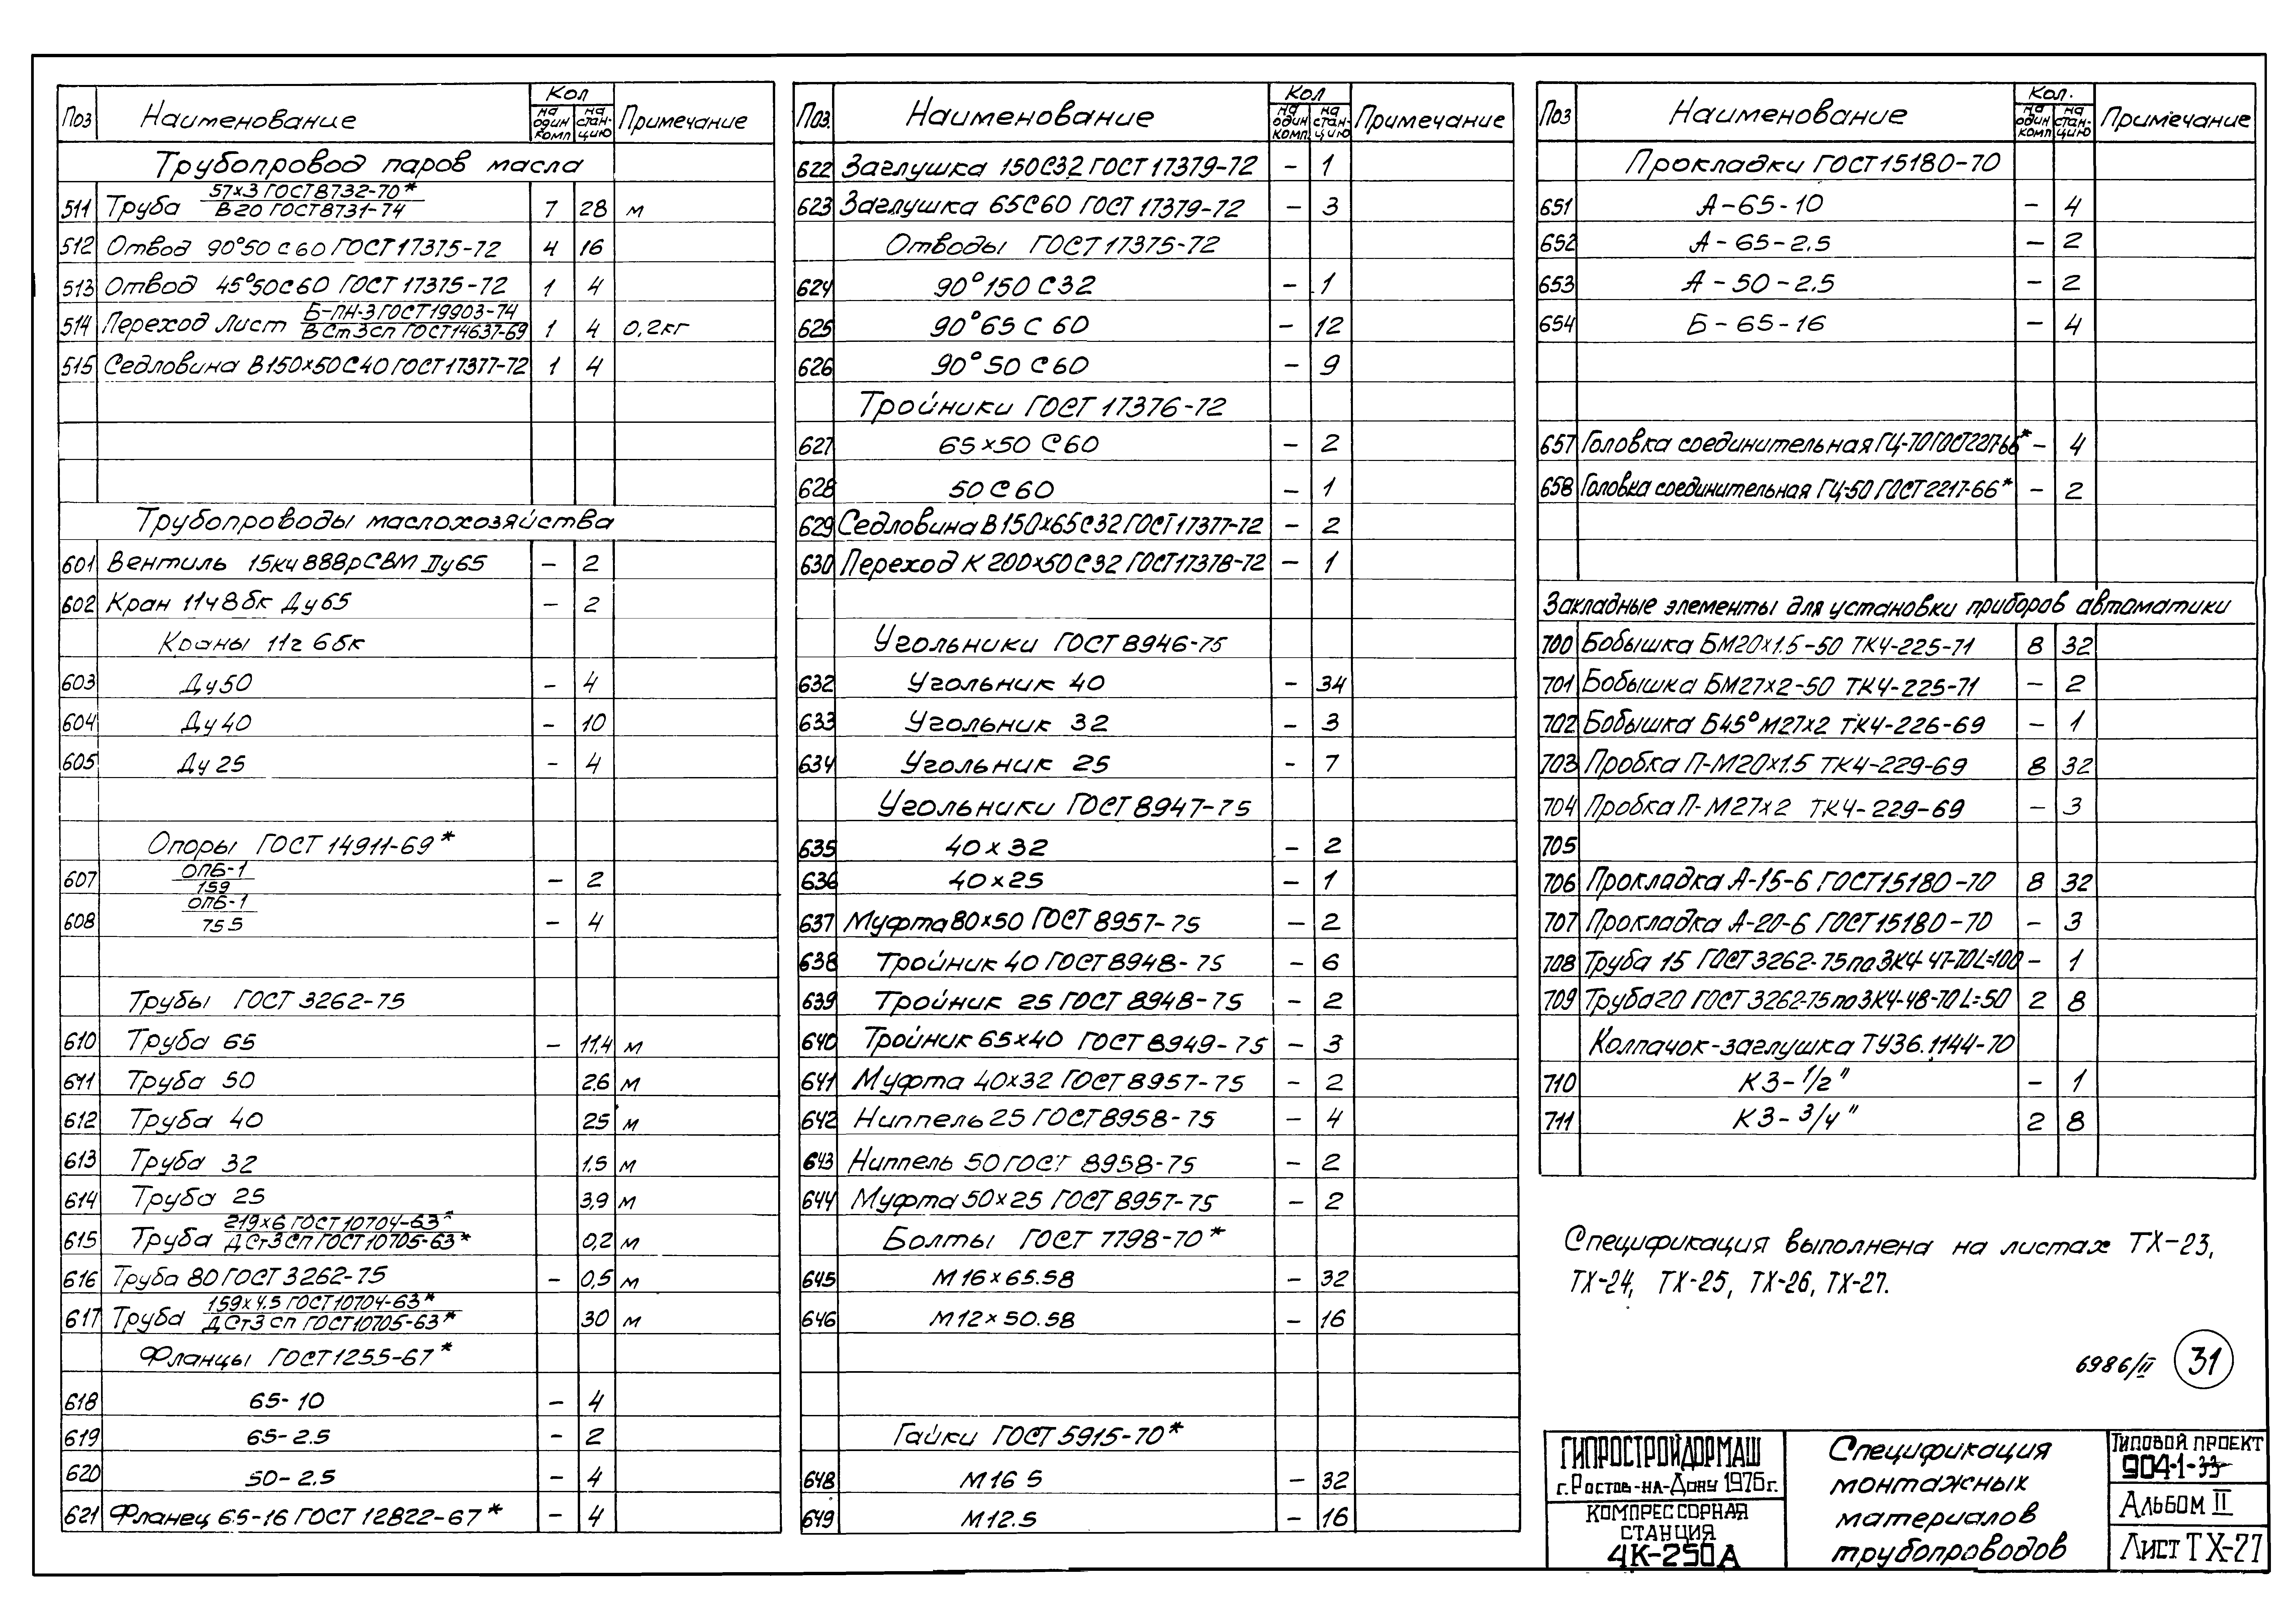 Поз Наименование Кол на один комп на стан-цию Примечание
Трубопровод паров масла
511 Труба 57х3 ГОСТ8732-70* / В20 ГОСТ8731-74 7 28 м
512 Отвод 90°50 С60 ГОСТ17375-72 4 16
513 Отвод 45°50С60 ГОСТ 17375-72 1 4
514 Переход Лист Б-ПН-3 ГОСТ19903-74 / ВСт3сп ГОСТ14637-69 1 4 0,2кг
515 Седловина В150х50С40 ГОСТ17377-72 1 4
Трубопроводы маслохозяйства
601 Вентиль 15кч 888рСВМ Ду65 – 2
602 Кран 11ч8бк Ду65 – 2
Краны 11г 6бк
603 Ду50 – 4
604 Ду40 – 10
605 Ду25 – 4
Опоры ГОСТ 14911-69*
607 ОПБ-1 / 159 – 2
608 ОПБ-1 / 75.5 – 4
Трубы ГОСТ 3262-75
610 Труба 65 – 11,4 м
611 Труба 50 2,6 м
612 Труба 40 25 м
613 Труба 32 1,5 м
614 Труба 25 3,9 м
615 Труба 219х6 ГОСТ10704-63* / ДСт3сп ГОСТ10705-63* 0,2 м
616 Труба 80 ГОСТ3262-75 – 0,5 м
617 Труба 159х4.5 ГОСТ10704-63* / ДСт3сп ГОСТ10705-63* 30 м
Фланцы ГОСТ1255-67*
618 65-10 – 4
619 65-2.5 – 2
620 50-2.5 – 4
621 Фланец 65-16 ГОСТ 12822-67* – 4
Поз. Наименование Кол на один комп. на стан-цию Примечание
622 Заглушка 150С32 ГОСТ 17379-72 – 1
623 Заглушка 65С60 ГОСТ 17379-72 – 3
Отводы ГОСТ17375-72
624 90°150 С32 – 1
625 90°65 С 60 – 12
626 90°50 С60 – 9
Тройники ГОСТ 17376-72
627 65х50 С60 – 2
628 50 С60 – 1
629 Седловина В150х65С32 ГОСТ17377-72 – 2
630 Переход К 200х50С32 ГОСТ17378-72 – 1
Угольники ГОСТ8946-75
632 Угольник 40 – 34
633 Угольник 32 – 3
634 Угольник 25 – 7
Угольники ГОСТ 8947-75
635 40х32 – 2
636 40х25 – 1
637 Муфта 80х50 ГОСТ 8957-75 – 2
638 Тройник 40 ГОСТ8948-75 – 6
639 Тройник 25 ГОСТ 8948-75 – 2
640 Тройник 65х40 ГОСТ 8949-75 – 3
641 Муфта 40х32 ГОСТ8957-75 – 2
642 Ниппель 25 ГОСТ8958-75 – 4
643 Ниппель 50 ГОСТ 8958-75 – 2
644 Муфта 50х25 ГОСТ8957-75 – 2
Болты ГОСТ 7798-70*
645 М16х65.58 – 32
646 М12х50.58 – 16
Гайки ГОСТ 5915-70*
648 М16 5 – 32
649 М12.5 – 16
Поз Наименование Кол. на один комп на стан-цию Примечание
Прокладки ГОСТ15180-70
651 А-65-10 – 4
652 А-65-2.5 – 2
653 А-50-2.5 – 2
654 Б-65-16 – 4
657 Головка соединительная ГЦ-70 ГОСТ2217-66* – 4
658 Головка соединительная ГЦ-50 ГОСТ2217-66* – 2
Закладные элементы для установки приборов автоматики
700 Бобышка БМ20х1.5-50 ТК4-225-71 8 32
701 Бобышка БМ27х2-50 ТК4-225-71 – 2
702 Бобышка Б45°М27х2 ТК4-226-69 – 1
703 Пробка П-М20х1.5 ТК4-229-69 8 32
704 Пробка П-М27х2 ТК4-229-69 – 3
705
706 Прокладка А-15-6 ГОСТ15180-70 8 32
707 Прокладка А-20-6 ГОСТ15180-70 – 3
708 Труба 15 ГОСТ3262-75 по ЗК4-47-70 L=100 – 1
709 Труба 20 ГОСТ 3262-75 по ЗК4-48-70 L=50 2 8
Колпачок-заглушка ТУ36.1144-70
710 КЗ-1/2" – 1
711 КЗ-3/4" 2 8
Спецификация выполнена на листах ТХ-23,
ТХ-24, ТХ-25, ТХ-26, ТХ-27.
6986/II 31
ГИПРОСТРОЙДОРМАШ
г.Ростов-на-Дону 1976г.
КОМПРЕССОРНАЯ
СТАНЦИЯ
4К-250А
Спецификация
монтажных
материалов
трубопроводов
Типовой проект
904-1-33
Альбом II
Лист ТХ-27